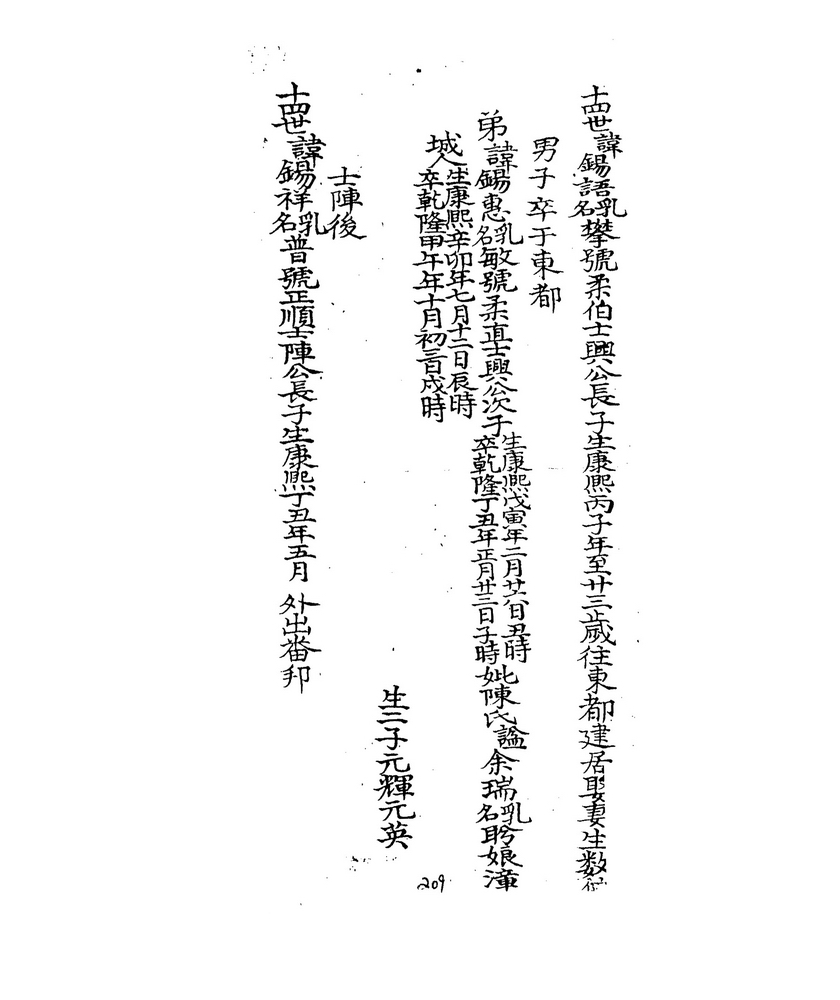 十四世諱錫語乳名攀號柔伯士興公長子生康熙丙子年至廿三歲往東都建居娶妻生数
男子卒于東都
弟諱錫惠乳名敏號柔直士興公次子生康熙戊寅年二月廿六日丑時卒乾隆丁丑年正月廿三日子時妣陳氏謚余瑞乳名聆娘潼
城人生康熙辛卯年七月十二日辰時卒乾隆甲午年十月初三日戌時
生二子元輝元英
士陣後
十四世諱錫祥乳名普號正順士陣公長子生康熙丁丑年五月 外出番邦
209